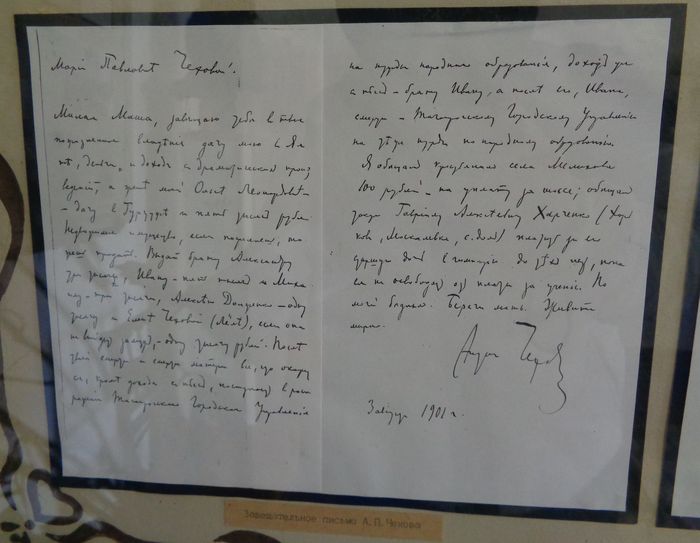 Марiи Павловнѣ Чеховой.
Милая Маша, завѣщаю тебѣ въ твое
пожизненное владѣнiе дачу мою въ Ял
тѣ, деньги и доходъ съ драматическихъ произ
веденiй, а женѣ моей Ольгѣ Леонардовнѣ –
– дачу въ Гурзуфѣ и пять тысячъ рублей.
Недвижимое имущество, если пожелаешь, мо
жешь продать. Выдай брату Александру
три тысячи, Ивану – пять тысячъ и Миха
илу – три тысячи, Алексѣю Долженко – одну
тысячу и Еленѣ Чеховой (Лёлѣ), если она
не выйдетъ замужъ, – одну тысячу рублей. Послѣ
твоей смерти и смерти матери все, что окажет
ся, кромѣ дохода съ пьесъ, поступаетъ въ распо
ряженiе Таганрогскаго Городского Управленiя
на нужды народнаго образованiя, доходъ же
съ пьесъ – брату Ивану, а послѣ его, Ивана,
смерти – Таганрогскому Городскому Управленiю
на тѣ же нужды по народному образованiю.
Я обѣщалъ крестьянамъ села Мелихова
100 рублей – на уплату за шоссе; обѣщалъ
также Гаврiилу Алексѣевичу Харченко (Харь
ковъ, Москалевка, с. домъ) платить за его
старшую дочь въ гимназiю до тѣхъ поръ, пока
ее не освободятъ отъ платы за ученiе. По
могай бѣднымъ. Береги мать. Живите
мирно.
Антонъ Чеховъ
3 авгуру 1901 г.
Завещательное письмо А.П.Чехова